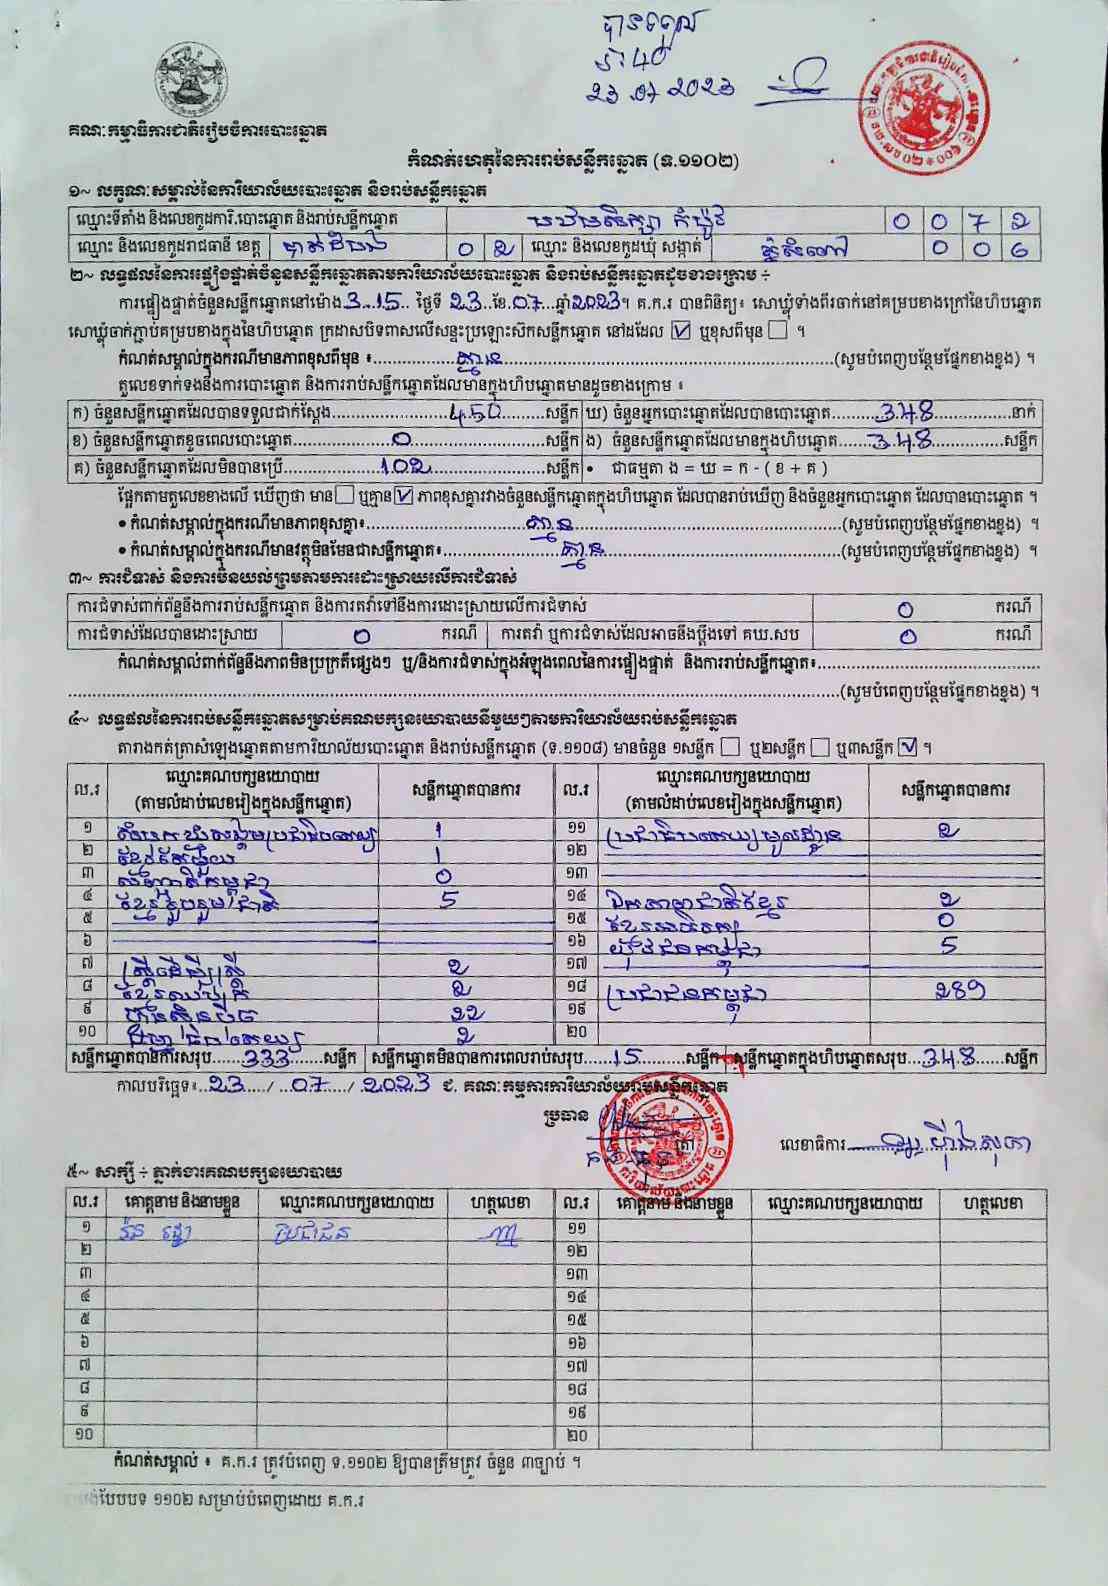 បានទទួល
23.07.2023
គណៈកម្មាធិការជាតិរៀបចំការបោះឆ្នោត
កំណត់ហេតុនៃការរាប់សន្លឹកឆ្នោត (ទ.១១០២)
១~ លក្ខណៈសម្គាល់នៃការិយាល័យបោះឆ្នោត និងរាប់សន្លឹកឆ្នោត
ឈ្មោះទីតាំង និងលេខកូដការិ.បោះឆ្នោត និងរាប់សន្លឹកឆ្នោត 0 0 7 2
ឈ្មោះ និងលេខកូដរាជធានី ខេត្ត បាត់ដំបង 0 2 ឈ្មោះ និងលេខកូដឃុំ សង្កាត់ 0 0 6
២~ លទ្ធផលនៃការផ្ទៀងផ្ទាត់ចំនួនសន្លឹកឆ្នោតតាមការិយាល័យបោះឆ្នោត និងរាប់សន្លឹកឆ្នោតដូចខាងក្រោម ÷
ការផ្ទៀងផ្ទាត់ចំនួនសន្លឹកឆ្នោតនៅម៉ោង 3.15 ថ្ងៃទី 23 ខែ 07 ឆ្នាំ 2023។ គ.ក.រ បានពិនិត្យ៖ សោឃ្លុំទាំងពីរចាក់នៅគម្របខាងក្រៅនៃហិបឆ្នោត
សោឃ្លុំចាក់ភ្ជាប់គម្របខាងក្នុងនៃហិបឆ្នោត ក្រដាសបិទពាសលើសន្ទះប្រឡោះស៊កសន្លឹកឆ្នោត នៅដដែល ☑ ឬខុសពីមុន ☐ ។
កំណត់សម្គាល់ក្នុងករណីមានភាពខុសពីមុន ៖ គ្មាន (សូមបំពេញបន្ថែមផ្នែកខាងខ្នង) ។
តួលេខទាក់ទងនឹងការបោះឆ្នោត និងការរាប់សន្លឹកឆ្នោតដែលមានក្នុងហិបឆ្នោតមានដូចខាងក្រោម ៖
ក) ចំនួនសន្លឹកឆ្នោតដែលបានទទួលជាក់ស្ដែង 450 សន្លឹក ឃ) ចំនួនអ្នកបោះឆ្នោតដែលបានបោះឆ្នោត 348 នាក់
ខ) ចំនួនសន្លឹកឆ្នោតខូចពេលបោះឆ្នោត 0 សន្លឹក ង) ចំនួនសន្លឹកឆ្នោតដែលមានក្នុងហិបឆ្នោត 348 សន្លឹក
គ) ចំនួនសន្លឹកឆ្នោតដែលមិនបានប្រើ 102 សន្លឹក • ជាធម្មតា ង = ឃ = ក - ( ខ + គ )
ផ្អែកតាមតួលេខខាងលើ ឃើញថា មាន ☐ ឬគ្មាន ☑ ភាពខុសគ្នារវាងចំនួនសន្លឹកឆ្នោតក្នុងហិបឆ្នោត ដែលបានរាប់ឃើញ និងចំនួនអ្នកបោះឆ្នោត ដែលបានបោះឆ្នោត ។
• កំណត់សម្គាល់ក្នុងករណីមានភាពខុសគ្នា៖ គ្មាន (សូមបំពេញបន្ថែមផ្នែកខាងខ្នង) ។
• កំណត់សម្គាល់ក្នុងករណីមានវត្ថុមិនមែនជាសន្លឹកឆ្នោត៖ គ្មាន (សូមបំពេញបន្ថែមផ្នែកខាងខ្នង) ។
៣~ ការជំទាស់ និងការមិនយល់ព្រមតាមការដោះស្រាយលើការជំទាស់
ការជំទាស់ពាក់ព័ន្ធនឹងការរាប់សន្លឹកឆ្នោត និងការតវ៉ាទៅនឹងការដោះស្រាយលើការជំទាស់ 0 ករណី
ការជំទាស់ដែលបានដោះស្រាយ 0 ករណី ការតវ៉ា ឬការជំទាស់ដែលអាចនឹងប្ដឹងទៅ គឃ.សប 0 ករណី
កំណត់សម្គាល់ពាក់ព័ន្ធនឹងភាពមិនប្រក្រតីផ្សេងៗ ឬ/និងការជំទាស់ក្នុងអំឡុងពេលនៃការផ្ទៀងផ្ទាត់ និងការរាប់សន្លឹកឆ្នោត៖
(សូមបំពេញបន្ថែមផ្នែកខាងខ្នង) ។
៤~ លទ្ធផលនៃការរាប់សន្លឹកឆ្នោតសម្រាប់គណបក្សនយោបាយនីមួយៗតាមការិយាល័យរាប់សន្លឹកឆ្នោត
តារាងកត់ត្រាសំឡេងឆ្នោតតាមការិយាល័យបោះឆ្នោត និងរាប់សន្លឹកឆ្នោត (ទ.១១០៨) មានចំនួន ១សន្លឹក ☐ ឬ២សន្លឹក ☐ ឬ៣សន្លឹក ☑ ។
ល.រ ឈ្មោះគណបក្សនយោបាយ (តាមលំដាប់លេខរៀងក្នុងសន្លឹកឆ្នោត) សន្លឹកឆ្នោតបានការ ល.រ ឈ្មោះគណបក្សនយោបាយ (តាមលំដាប់លេខរៀងក្នុងសន្លឹកឆ្នោត) សន្លឹកឆ្នោតបានការ
១ 1 ១១ ប្រជាធិបតេយ្យមូលដ្ឋាន 2
២ 1 ១២
៣ 0 ១៣
៤ ខ្មែររួបរួមជាតិ 5 ១៤ ឯកភាពជាតិខ្មែរ 2
៥ ១៥ 0
៦ ១៦ 5
៧ ស្ត្រីដើម្បីស្ត្រី 2 ១៧
៨ 2 ១៨ ប្រជាជនកម្ពុជា 289
៩ ហ៊្វុនស៊ិនប៉ិច 22 ១៩
១០ 2 ២០
សន្លឹកឆ្នោតបានការសរុប 333 សន្លឹក សន្លឹកឆ្នោតមិនបានការពេលរាប់សរុប 15 សន្លឹក សន្លឹកឆ្នោតក្នុងហិបឆ្នោតសរុប 348 សន្លឹក
កាលបរិច្ឆេទ៖ 23 / 07 / 2023 ជ. គណៈកម្មការការិយាល័យរាប់សន្លឹកឆ្នោត
ប្រធាន
លេខាធិការ
៥~ សាក្សី ÷ ភ្នាក់ងារគណបក្សនយោបាយ
ល.រ គោត្តនាម និងនាមខ្លួន ឈ្មោះគណបក្សនយោបាយ ហត្ថលេខា ល.រ គោត្តនាម និងនាមខ្លួន ឈ្មោះគណបក្សនយោបាយ ហត្ថលេខា
១ ប្រជាជន ១១
២ ១២
៣ ១៣
៤ ១៤
៥ ១៥
៦ ១៦
៧ ១៧
៨ ១៨
៩ ១៩
១០ ២០
កំណត់សម្គាល់ ៖ គ.ក.រ ត្រូវបំពេញ ទ.១១០២ ឱ្យបានត្រឹមត្រូវ ចំនួន ៣ច្បាប់ ។
បែបបទ ១១០២ សម្រាប់បំពេញដោយ គ.ក.រ